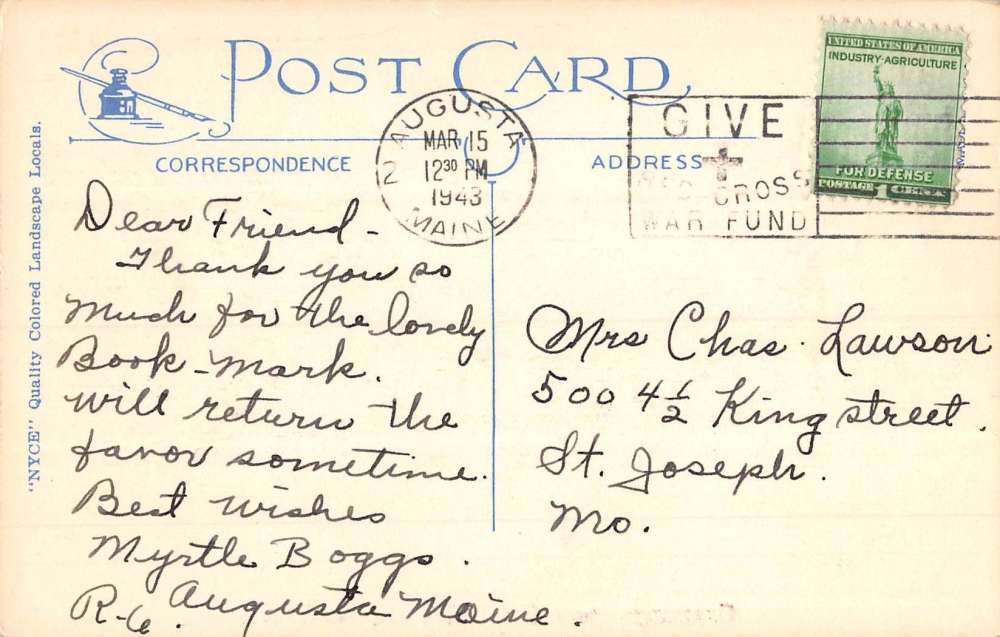 POST CARD
CORRESPONDENCE
ADDRESS
"NYCE" Quality Colored Landscape Locals.
AUGUSTA
MAR 15
12 30 PM
1943
MAINE
2
GIVE
RED CROSS
WAR FUND
UNITED STATES OF AMERICA
INDUSTRY-AGRICULTURE
FOR DEFENSE
POSTAGE 1 CENT
Dear Friend -
Thank you so
much for the lovely
Book-mark.
will return the
favor sometime.
Best wishes
Myrtle Boggs.
R-6. Augusta Maine.
Mrs Chas. Lawson
500 4½ King street.
St. Joseph.
Mo.